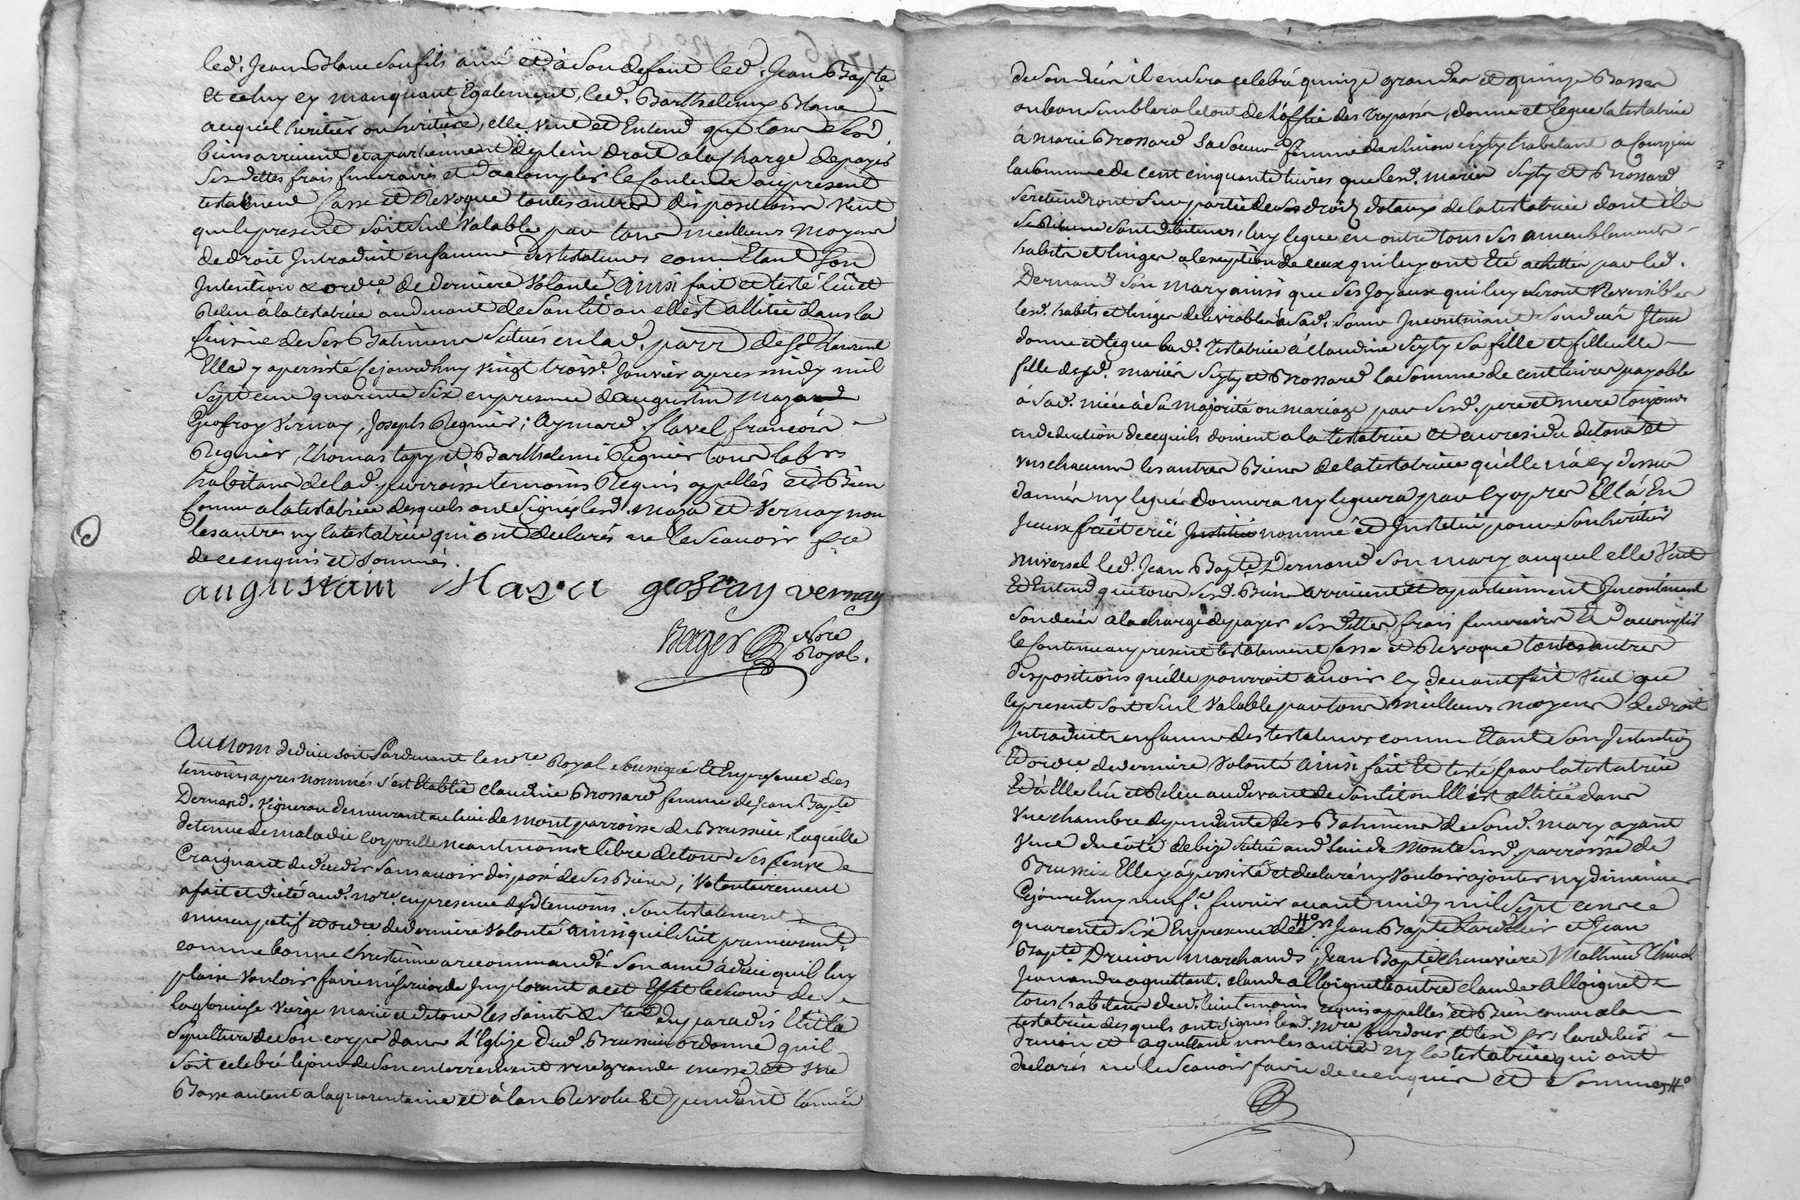 led. Jean Blanc son fils ainé et à son defaut led. Jean Bapte
et celuy cy manquant Egalement, led. Barthelemy Blanc
auquel heritier ou heritiere, elle veut et Entend que tous sesd.
biens arrivent et apartiennent de plein droit a la charge de payer
ses dettes frais funeraires et d'acomplir le contenu au present
testament Casse et Revoque toutes autres dispositions veut
que le present soit seul valable par tous meilleurs moyens
de droit Introduit en faveur des testateurs comm'Etant son
Intention & ordce. de derniere volonté ainsi fait et testé lû et
Releu à la testatrice au devant de son lit ou elle est allitée dans la
cuisine de ses Batimens situés en lad. parr. de St Laurent
Elle y a persisté Cejourdhuy vingt trois. Janvier apres midy mil
sept cent quarente six en presence d'augustin Maza
Geofroy Vernay, Joseph Regnier, Aymard flavel francois
Regnier, Thomas et Barthelemi Regnier tous labrs
habitans de lad. parroisse temoins Requis appellés et Bien
connu a la testatrice desquels ont signés lesd. maza et Vernay non
les autres ny la testatrice qui ont declarés ne le scavoir fre
de ce enquis et sommés.
augustain Maza geofray vernay
Berger Nore
Royal.
Au nom de dieu soit Pardevant le nore Royal soussigné Et En presence des
temoins apres nommés s'est Etablie Claudine Brossard femme de Jean Bapte
Dernand. vigneron demeurant au lieu de mont parroisse de Brussieu, laquelle
detenue de maladie corporelle neantmoins libre de tous ses sens
Craignant de deceder sans avoir disposé de ses Biens, volontairement
a fait et dicté aud. nore. en presence desd temoins. son testament
nuncupatif et ordce de derniere volonté ainsi quil suit premierement
comme bonne chrestienne a recommandé son ame à dieu quil luy
plaise vouloir faire misericorde Implorant a cet Effet le secours de
la glorieuse vierge marie et de tous les saints & Stes du paradis Elit la
sepulture de son corps dans L'Eglize dud. Brussieu ordonne quil
soit celebré le jour de son enterrement une grande messe et une
Basse autant a la quarentaine et à l'an Revolu Et pendant l'année
de son deces il en sera celebré quinze grandes et quinze Basses
ou bon semblera le tout de L'office des trepassés, donne et legue la testatrice
à marie Brossard sa soeur femme de Simon habitant a Courzieu
la somme de cent cinquante livres que lesd. mariés et Brossard
se retiendront sur partie de ses droits dotaux de la testatrice dont ils
sont debiteurs, luy legue en outre tous ses ameublements
habits et linges a l'exeption de ceux qui luy ont Eté achettés par led.
Dernand son mary ainsi que ses Joyaux qui luy seront Reversibles
lesd. habits et linges delivrables à sad. soeur Incontinant son deces Item
donne et legue lad. Testatrice à Claudine sa fille et filleulle
fille desd. mariés et Brossard la somme de cent livres payable
à sad. niéce à sa majorité ou mariage par sesd. pere et mere toujours
en deduction de ce quils doivent a la testatrice Et au residu de tous et
uns chacuns les autres Biens de la testatrice qu'elle n'a cy dessus
donnés ny legué donnera ny leguera par cy apres Ell'à En
Iceux fait créé nommé et Institué pour son heritier
universel led. Jean Bapte Dernand son mary auquel elle veut
Et Entend que tous sesd. Biens arrivent et apartiennent Incontinent
son deces a la charge de payer ses dettes frais funeraires Et d'accomplir
le contenu au present testament Casse et Revoque toutes autres
dispositions quelle pourroit avoir cy devant fait veut que
le present soit seul valable par tous meilleurs moyens de droit
Introduit en faveur des testateurs comm'Etant son Intention
Et ordce. de derniere volonté ainsi fait Et testé par la testatrice
Et à Elle lû et Releu au devant de son lit ou Elle est allitée dans
une chambre dependante des Batimens de sond. mary ayant
vue du coté de bize situé aud. lieu de Mont susd. parroisse de
Brussieu Elle y a persisté et declaré ny vouloir ajouter ny diminuer
Cejourdhuy neuf. fevrier avant midy mil sept cent
quarente six En presence de Jean Bapte et Jean
Bapte Drivon marchands, Jean Bapte cheneviere Mathieu
Jean aquettant, claude alloignet et autre claude alloignet
tous habitans dud. lieu temoins requis appellés et Bien connu a la
testatrice desquels ont signés
Drivon et aquettant non les autres ny la testatrice qui ont
declarés ne le scavoir faire de ce enquis et sommés